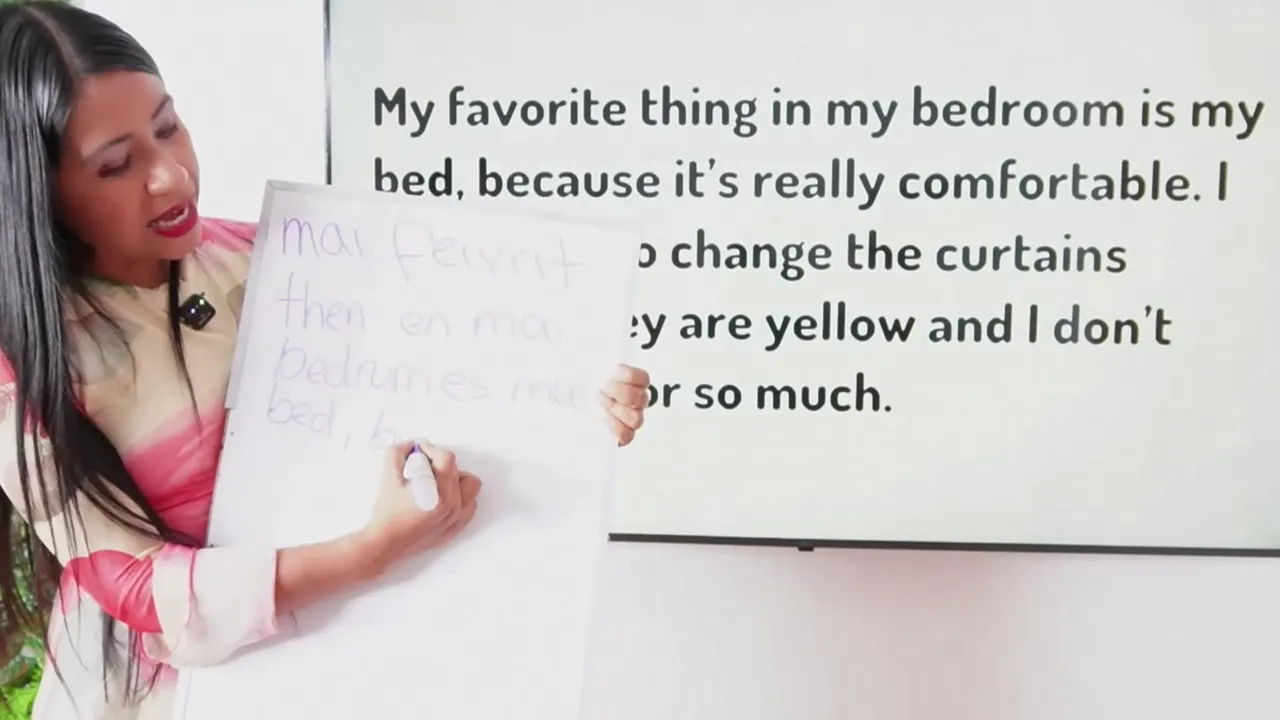 My favorite thing in my bedroom is my
bed, because it's really comfortable. I
o change the curtains
ey are yellow and I don't
or so much.
mai feivrit
then en mai
bedrum es mai
bed, b